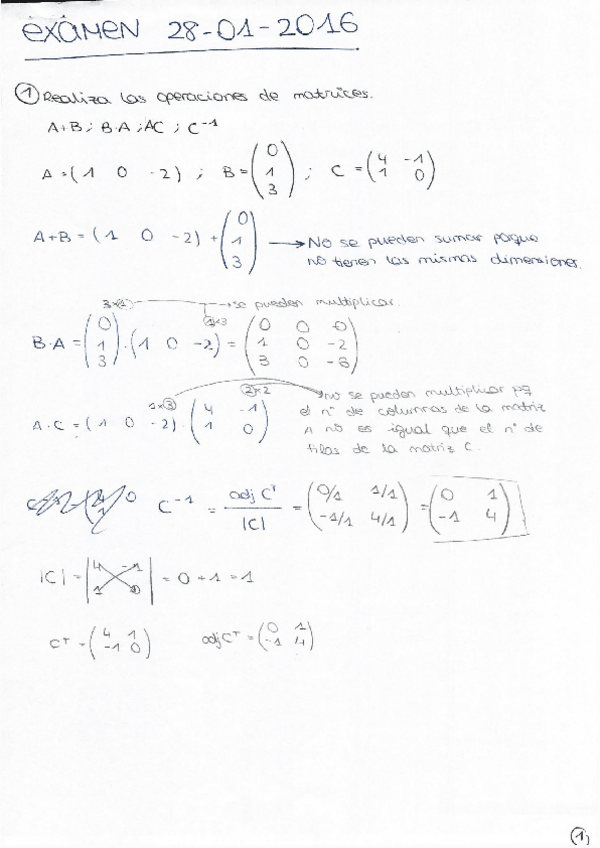 EXÁMEN 28-01-2016
① Realiza las operaciones de matrices.
A+B ; B·A ; AC ; C⁻¹
A = (1 0 -2) ; B = (0 1 3) ; C = (4 -1 1 0)
A+B = (1 0 -2) + (0 1 3) → No se pueden sumar porque
no tienen las mismas dimensiones.
3×1 1×3 → se pueden multiplicar.
B·A = (0 1 3) · (1 0 -2) = (0 0 -0 1 0 -2 3 0 -6)
1×3 2×2 → no se pueden multiplicar pq
el nº de columnas de la matriz
A·C = (1 0 -2) · (4 -1 1 0) A no es igual que el nº de
filas de la matriz C.
C⁻¹ = adj Cᵗ / |C| = (0/1 1/1 -1/1 4/1) = (0 1 -1 4)
|C| = |4 -1 1 0| = 0 + 1 = 1
Cᵀ = (4 1 -1 0) adj Cᵀ = (0 1 -1 4)
①